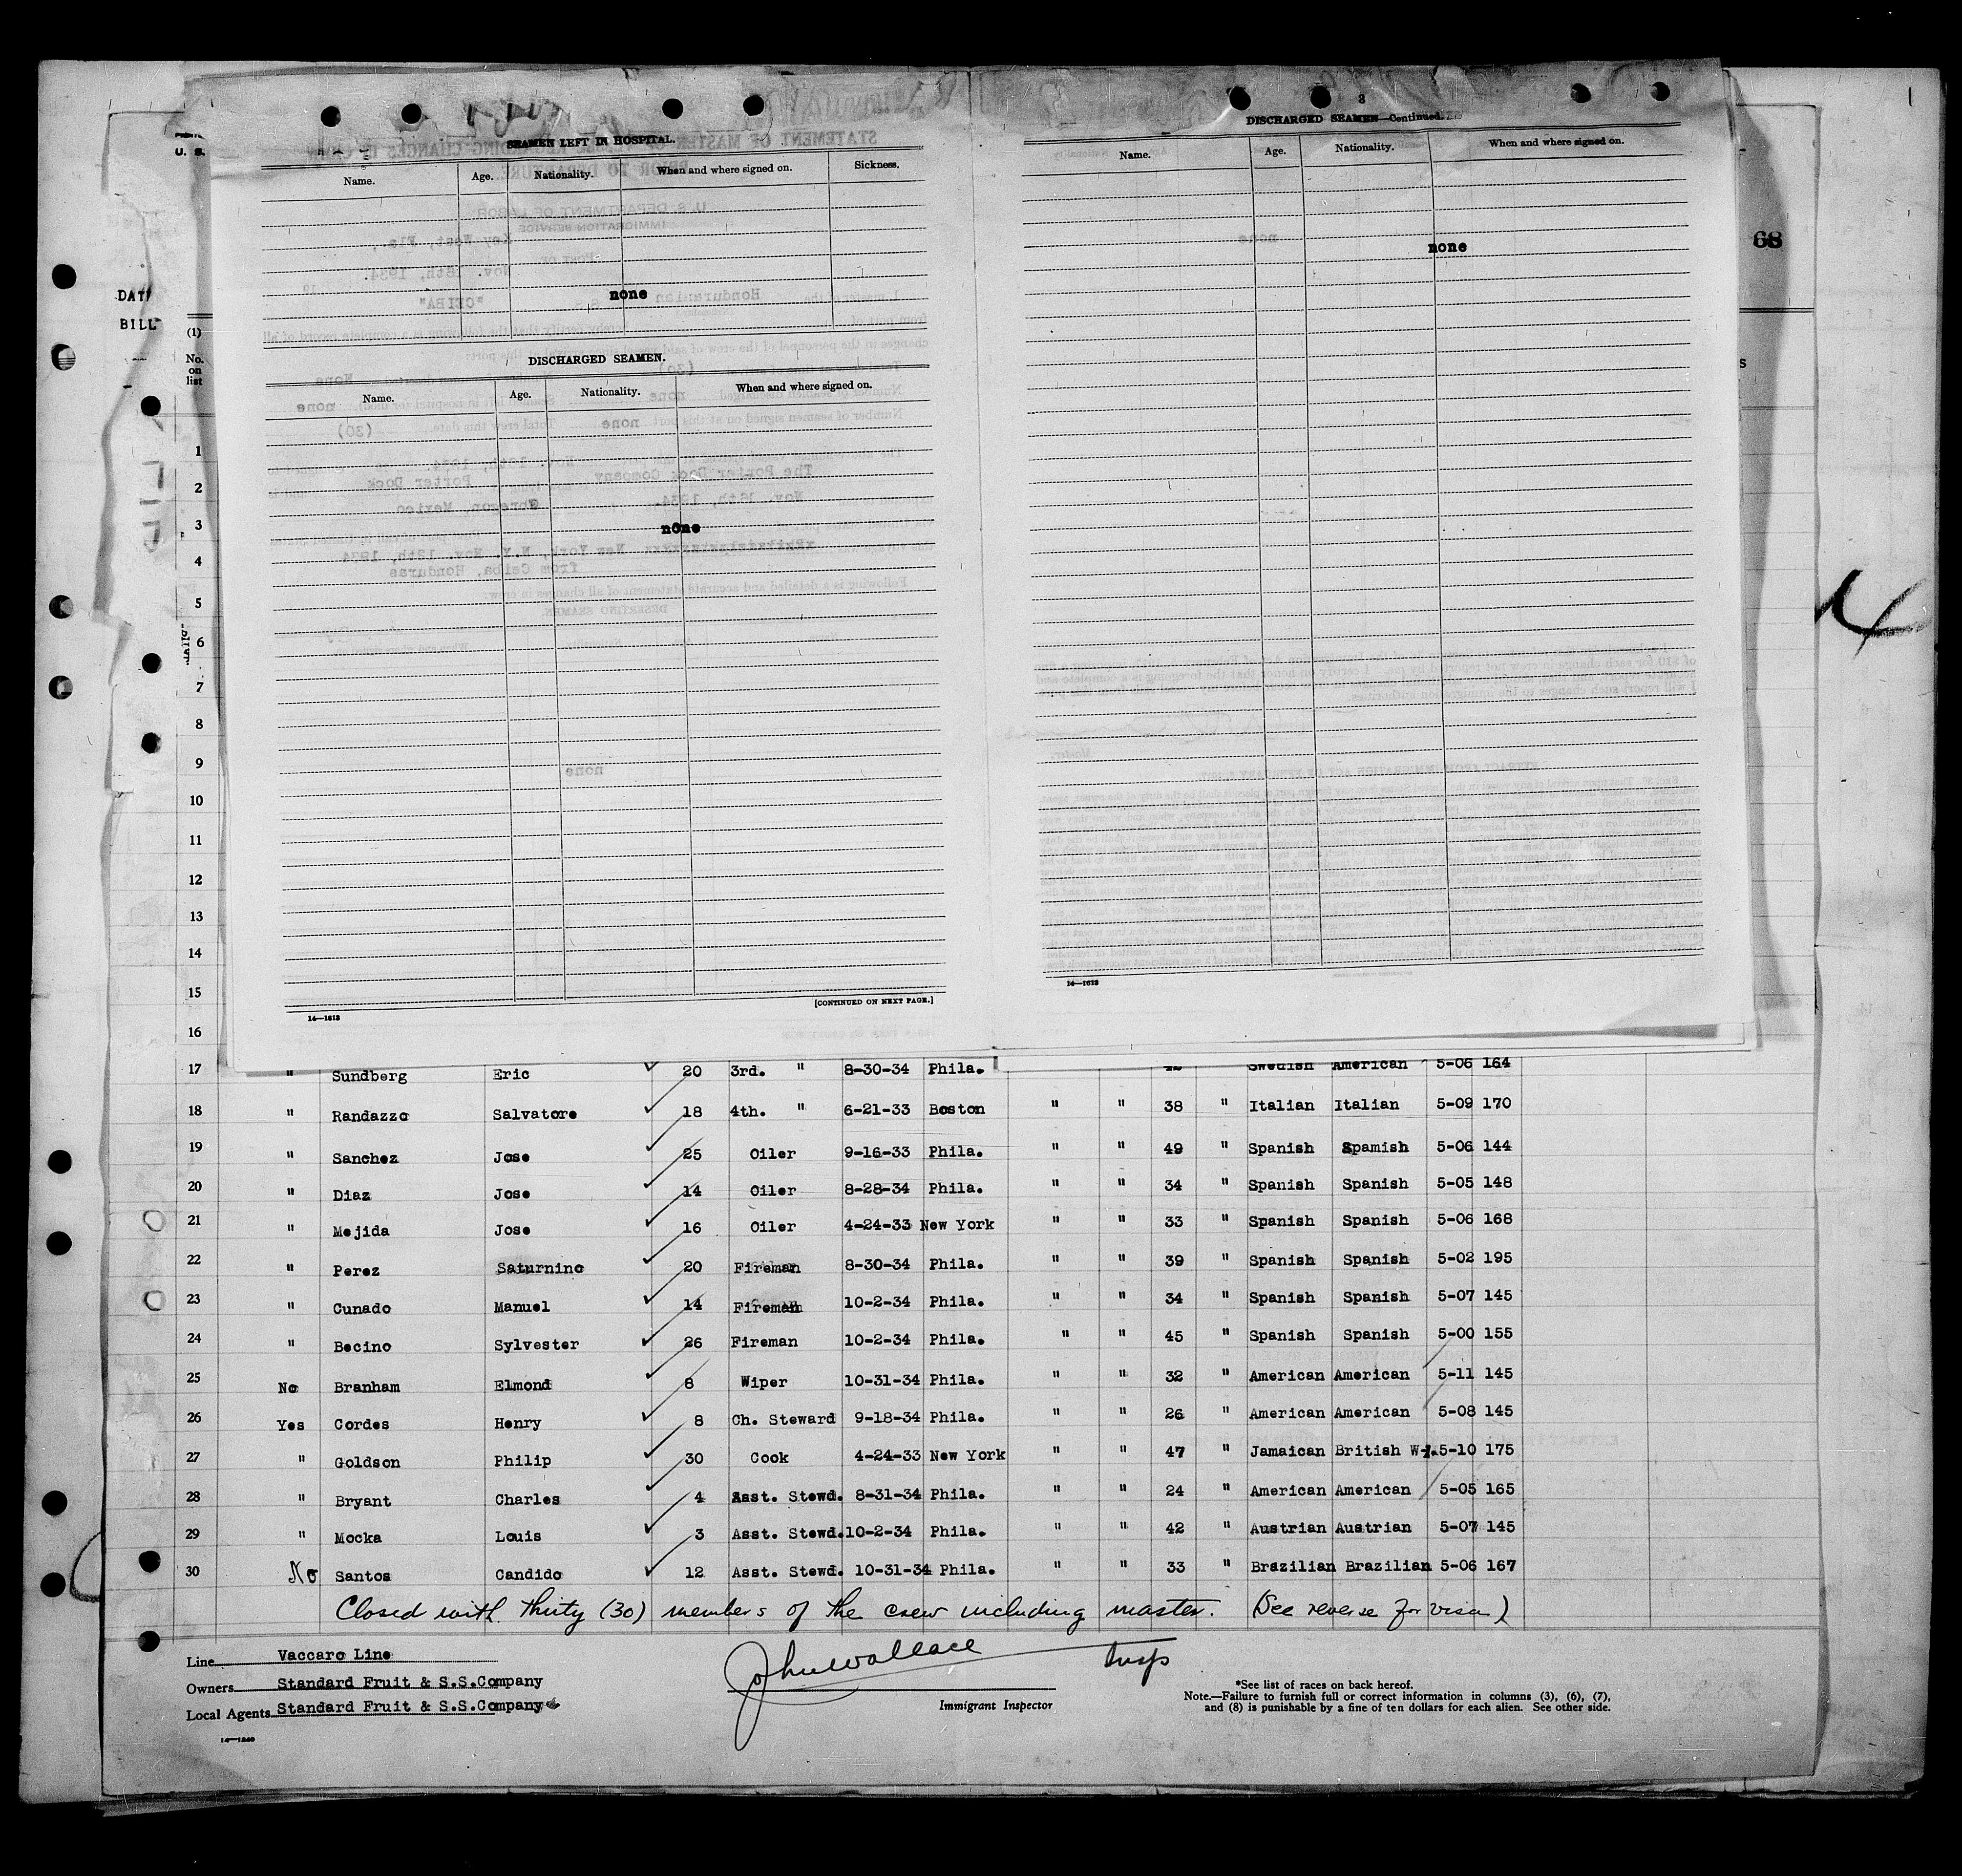 SEAMEN LEFT IN HOSPITAL.
Name. Age. Nationality. When and where signed on. Sickness.
none
DISCHARGED SEAMEN.
Name. Age. Nationality. When and where signed on.
none
[CONTINUED ON NEXT PAGE.]
14—1613
3
DISCHARGED SEAMEN—Continued.
Name. Age. Nationality. When and where signed on.
none
14—1613
68
U. S.
BILL
(1)
No.
on
list
1
2
3
4
5
6
7
8
9
10
11
12
13
14
15
16
17 " Sundberg Eric 20 3rd. " 8-30-34 Phila. Swedish American 5-06 164
18 " Randazzo Salvatore 18 4th. " 6-21-33 Boston " " 38 " Italian Italian 5-09 170
19 " Sanchez Jose 25 Oiler 9-16-33 Phila. " " 49 " Spanish Spamish 5-06 144
20 " Diaz Jose 14 Oiler 8-28-34 Phila. " " 34 " Spanish Spanish 5-05 148
21 " Mejida Jose 16 Oiler 4-24-33 New York " " 33 " Spanish Spanish 5-06 168
22 " Perez Saturnino 20 Fireman 8-30-34 Phila. " " 39 " Spanish Spanish 5-02 195
23 " Cunado Manuel 14 Fireman 10-2-34 Phila. " " 34 " Spanish Spanish 5-07 145
24 " Becino Sylvester 26 Fireman 10-2-34 Phila. " " 45 " Spanish Spanish 5-00 155
25 No Branham Elmond 8 Wiper 10-31-34 Phila. " " 32 " American American 5-11 145
26 Yes Cordes Henry 8 Ch. Steward 9-18-34 Phila. " " 26 " American American 5-08 145
27 " Goldson Philip 30 Cook 4-24-33 New York " " 47 " Jamaican British W-I. 5-10 175
28 " Bryant Charles 4 Asst. Stewd. 8-31-34 Phila. " " 24 " American American 5-05 165
29 " Mocka Louis 3 Asst. Stewd. 10-2-34 Phila. " " 42 " Austrian Austrian 5-07 145
30 No Santos Candido 12 Asst. Stewd. 10-31-34 Phila. " " 33 " Brazilian Brazilian 5-06 167
Closed with thirty (30) members of the crew including master. (See reverse for visa)
Line Vaccaro Line
Owners Standard Fruit & S.S.Company
Local Agents Standard Fruit & S.S.Company
John Wallace Insp
Immigrant Inspector
*See list of races on back hereof.
Note.—Failure to furnish full or correct information in columns (3), (6), (7),
and (8) is punishable by a fine of ten dollars for each alien. See other side.